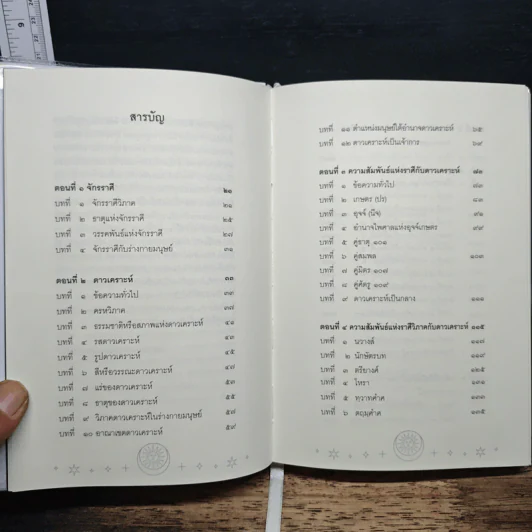 สารบัญ
ตอนที่ ๑ จักรราศี ๒๑
บทที่ ๑ จักรราศีวิภาค ๒๑
บทที่ ๒ ธาตุแห่งจักรราศี ๒๕
บทที่ ๓ วรรคพันธ์แห่งจักรราศี ๒๗
บทที่ ๔ จักรราศีกับร่างกายมนุษย์ ๓๑
ตอนที่ ๒ ดาวเคราะห์ ๓๓
บทที่ ๑ ข้อความทั่วไป ๓๓
บทที่ ๒ ครหวิภาค ๓๗
บทที่ ๓ ธรรมชาติหรือสภาพแห่งดาวเคราะห์ ๔๑
บทที่ ๔ รสดาวเคราะห์ ๔๓
บทที่ ๕ รูปดาวเคราะห์ ๔๕
บทที่ ๖ สีหรือวรรณะดาวเคราะห์ ๔๗
บทที่ ๗ แร่ของดาวเคราะห์ ๕๓
บทที่ ๘ ธาตุของดาวเคราะห์ ๕๕
บทที่ ๙ วิภาคดาวเคราะห์ในร่างกายมนุษย์ ๕๗
บทที่ ๑๐ อาณาเขตดาวเคราะห์ ๕๙
บทที่ ๑๑ ตำแหน่งมนุษย์ใต้อำนาจดาวเคราะห์ ๖๕
บทที่ ๑๒ ดาวเคราะห์เป็นเจ้าการ ๖๙
ตอนที่ ๓ ความสัมพันธ์แห่งราศีกับดาวเคราะห์
บทที่ ๑ ข้อความทั่วไป
บทที่ ๒ เกษตร (ปร) ๘๓
บทที่ ๓ อุจจ์ (นิจ) ๙๑
บทที่ ๔ อำนาจไพศาลแห่งอุจจ์เกษตร ๙๙
บทที่ ๕ คู่ธาตุ ๑๐๑
บทที่ ๖ คู่สมพล ๑๐๓
บทที่ ๗ คู่มิตร ๑๐๗
บทที่ ๘ คู่ศัตรู ๑๐๙
บทที่ ๙ ดาวเคราะห์เป็นกลาง ๑๑๑
ตอนที่ ๔ ความสัมพันธ์แห่งราศีวิภาคกับดาวเคราะห์ ๑๑๕
บทที่ ๑ นวางส์ ๑๑๗
บทที่ ๒ นักษัตรบท
บทที่ ๓ ตรียางศ์ ๑๒๕
บทที่ ๔ โหรา ๑๓๑
บทที่ ๕ ทวาทศำศ ๑๓๓
บทที่ ๖ ตฤมศำศ ๑๓๕